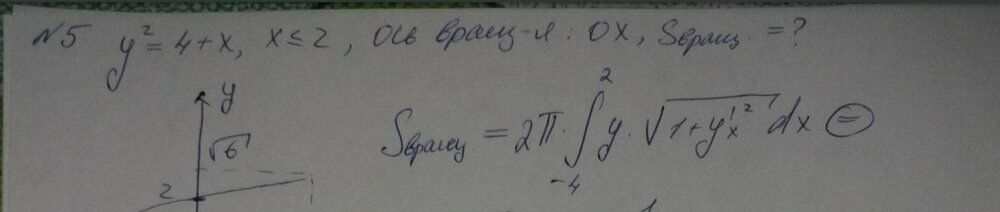 №5 y² = 4 + x, x ≤ 2, ось вращ-я: OX, Sвращ. = ?
y
√6
2
Sвращ = 2π · ∫₋₄² y · √(1 + y'ₓ²) dx ⊜